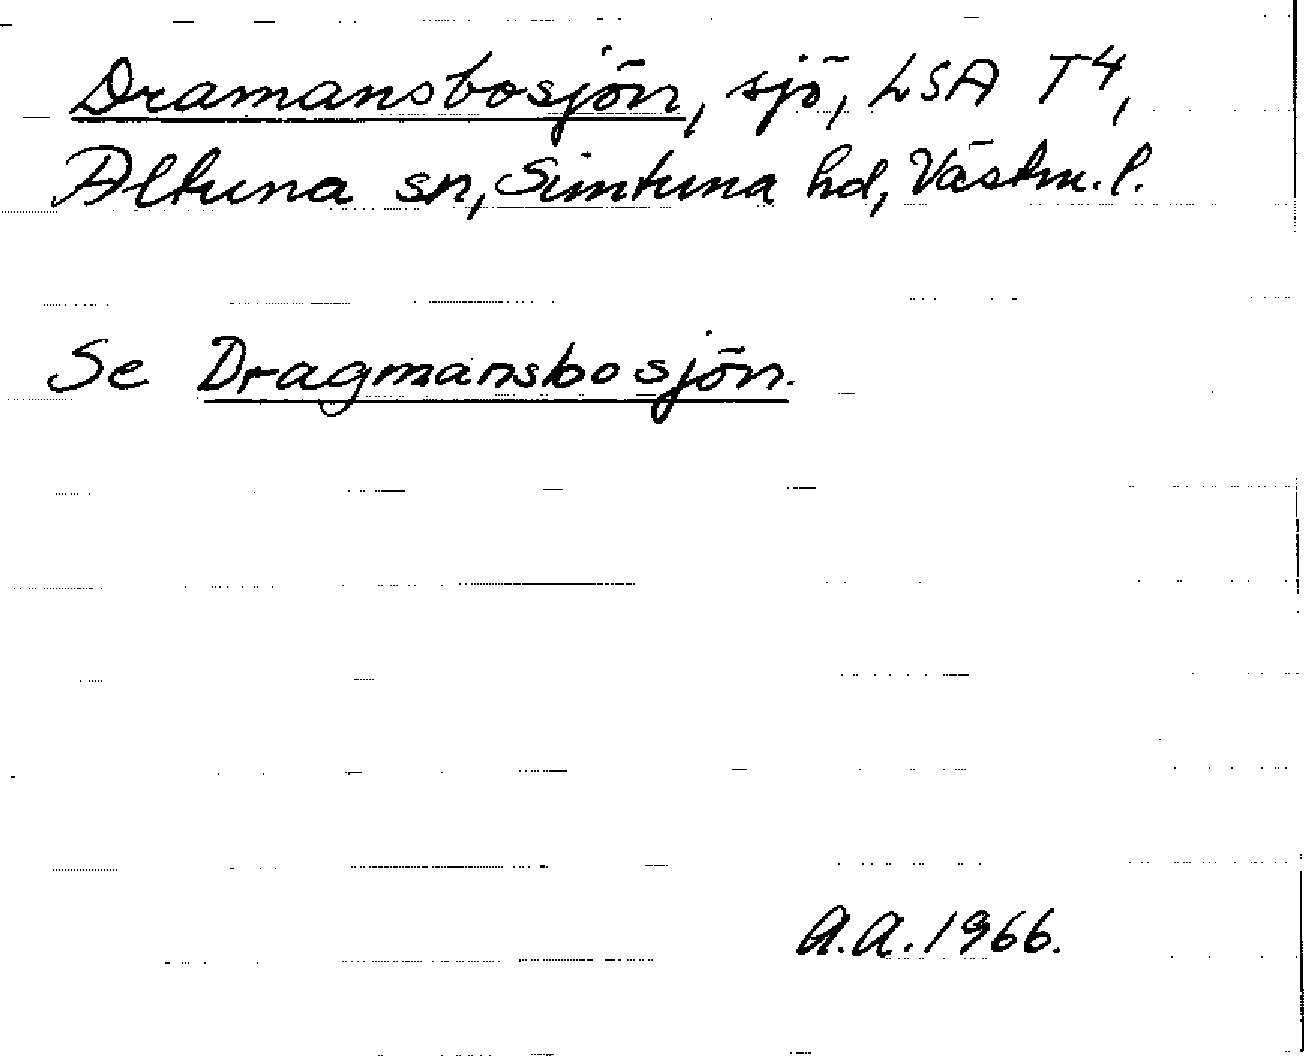 Dramansbosjön, sjö, LSA T4,
Altuna sn, Simtuna hd, Västm. l.
Se Dragmansbosjön.
A.A. 1966.